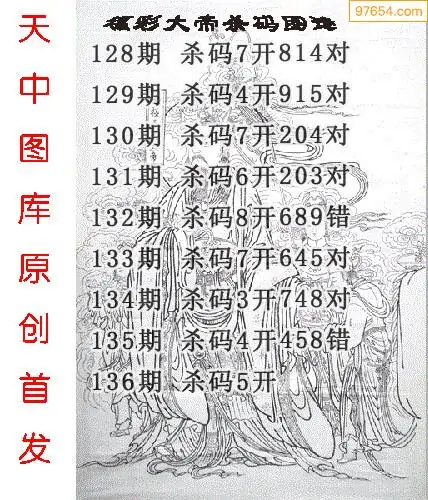 福彩大帝杀码图谜
97654.com
128期 杀码7开814对
129期 杀码4开915对
130期 杀码7开204对
131期 杀码6开203对
132期 杀码8开689错
133期 杀码7开645对
134期 杀码3开748对
135期 杀码4开458错
136期 杀码5开
天中图库原创首发